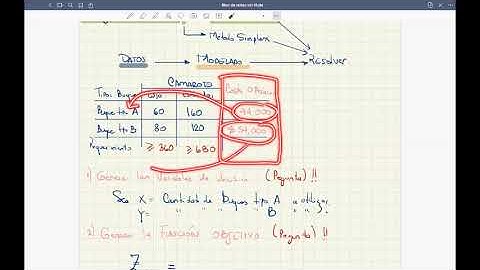 Método Simplex
Datos → Modelado → Resolver
CAMAROTE
Tipo Buque
Buque tipo A 60 160 44,000
Buque tipo B 80 120 $ 54,000
Requerimiento ≥ 360 ≥ 680
1) Generar las Variables de decisión (Pregunta) !!
Sea X = Cantidad de Buques tipo A a utilizar
Y = " " " " B " "
2) Generar la FUNCIÓN OBJETIVO (Pregunta) !!
Z =